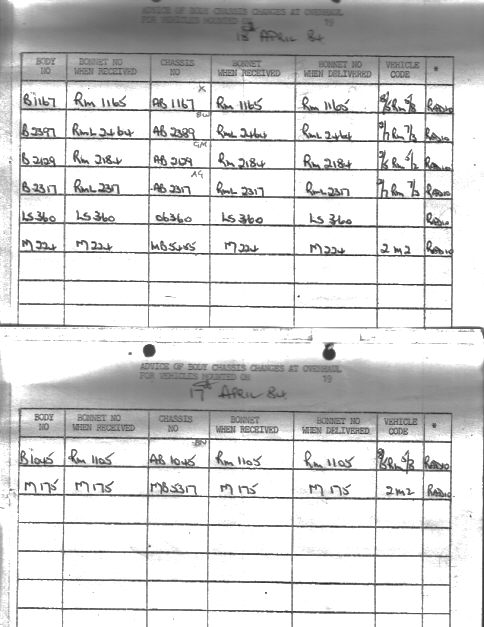 ADVICE OF BODY CHASSIS CHANGES AT OVERHAUL
FOR VEHICLES MOUNTED ON
18th APRIL 84
BODY NO BONNET NO WHEN RECEIVED CHASSIS NO BONNET WHEN RECEIVED BONNET NO WHEN DELIVERED VEHICLE CODE *
X
B1167 RM 1165 AB 1167 RM 1165 RM 1165 RM RADIO
BW
B2397 RML 2464 AB 2389 RML 2464 RML 2464 RM RADIO
GM
B2129 RM 2184 AB 2129 RM 2184 RM 2184 RM RADIO
AG
B2317 RML 2317 AB 2317 RML 2317 RML 2317 RM RADIO
LS 360 LS 360 06360 LS 360 LS 360 RADIO
M 224 M 224 MB5455 M 224 M 224 2 M2 RADIO
ADVICE OF BODY CHASSIS CHANGES AT OVERHAUL
FOR VEHICLES MOUNTED ON 19
17th APRIL 84
BODY NO BONNET NO WHEN RECEIVED CHASSIS NO BONNET WHEN RECEIVED BONNET NO WHEN DELIVERED VEHICLE CODE *
BN
B1045 RM 1105 AB 1045 RM 1105 RM 1105 RM RADIO
M 175 M 175 MB5317 M 175 M 175 2 M2 RADIO